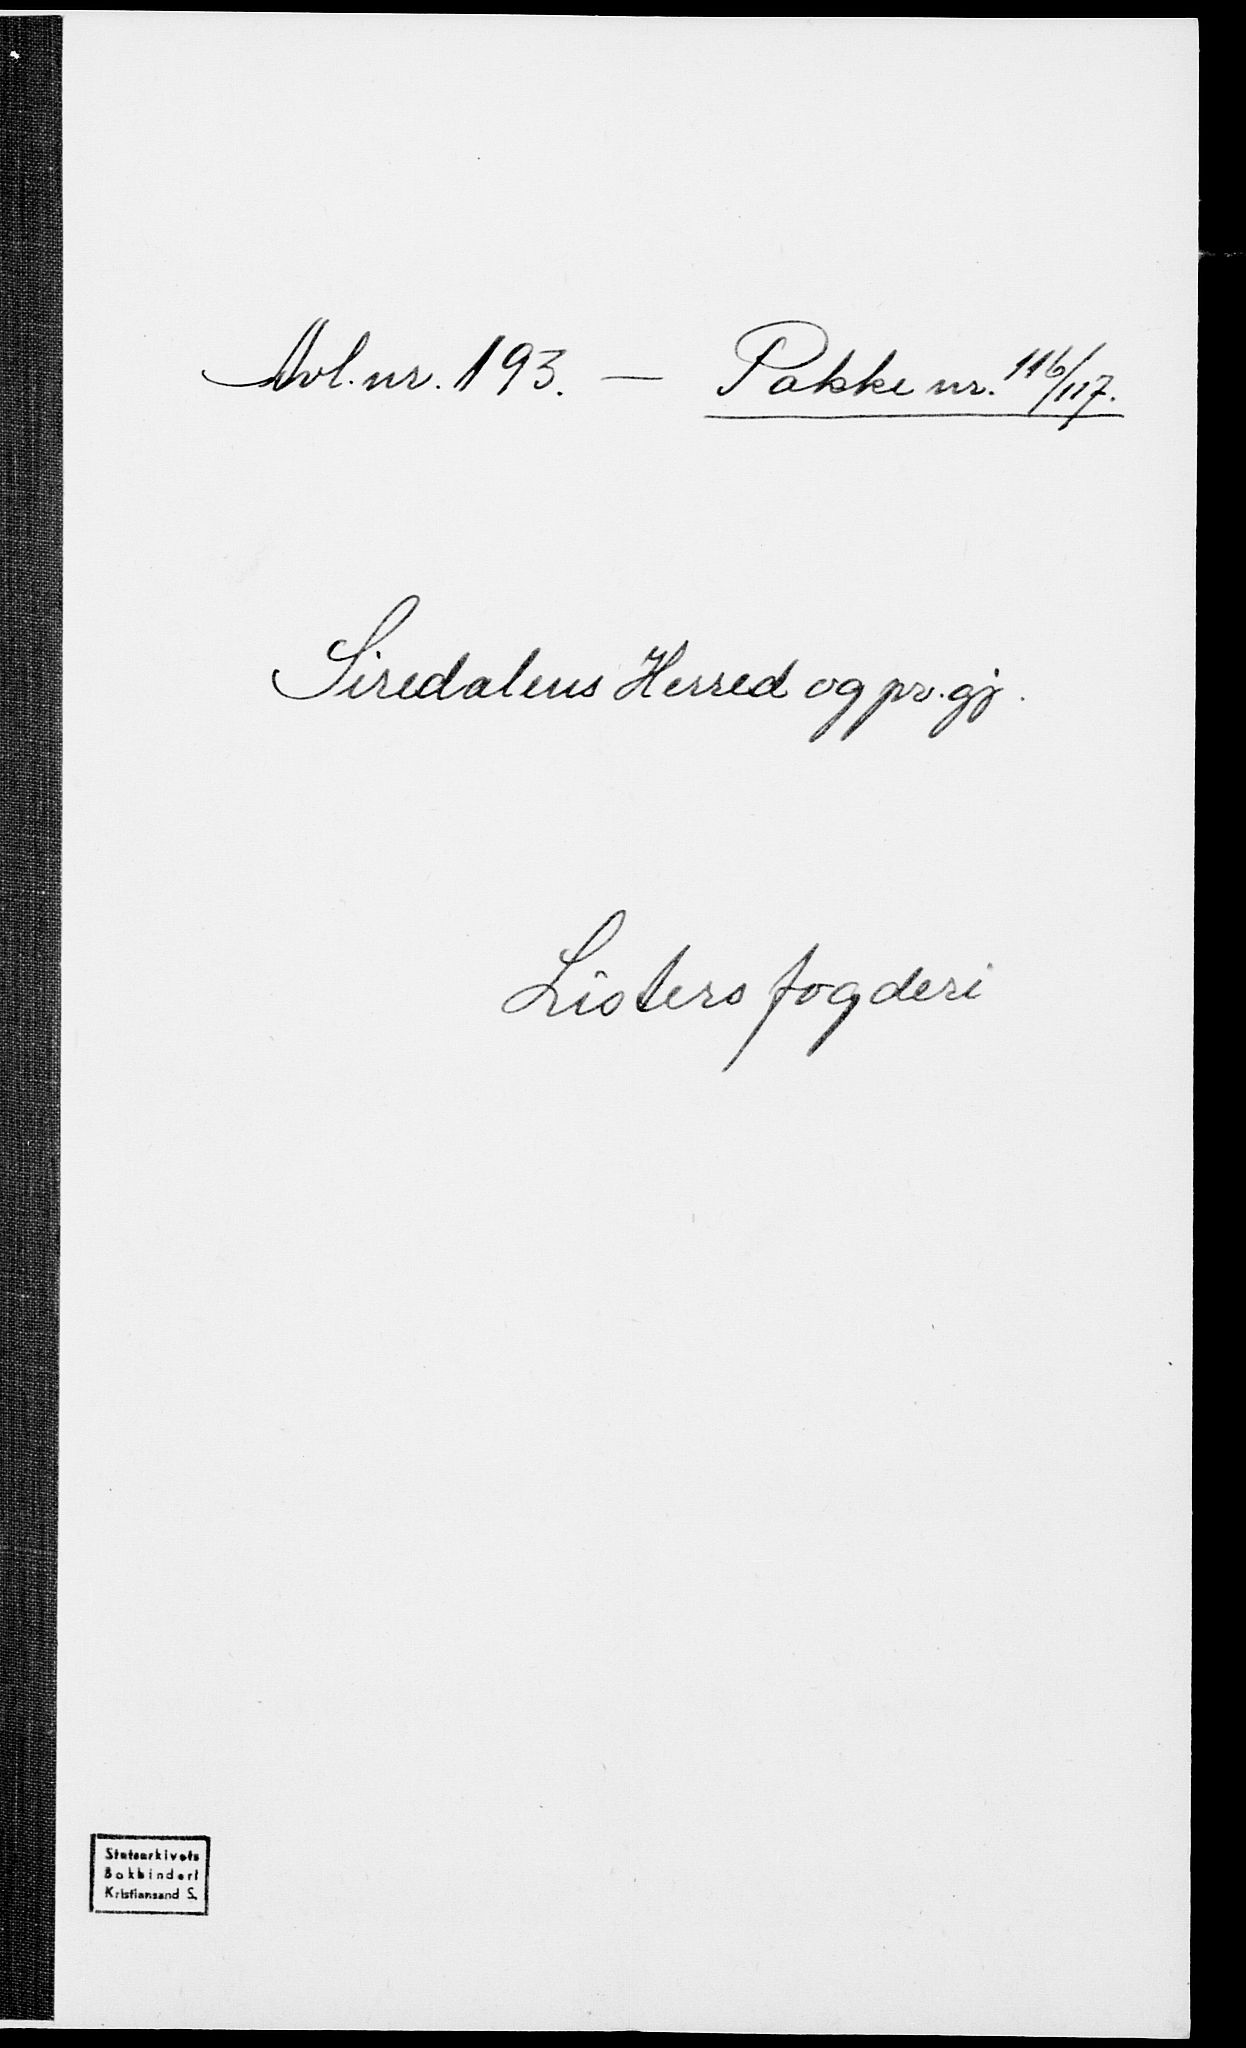 Avl. nr. 193. — Pakke nr. 116/117.
Siredalens Herred og pr. gj.
Listers fogderi
Statsarkivets
Bokbinderi
Kristiansand S.